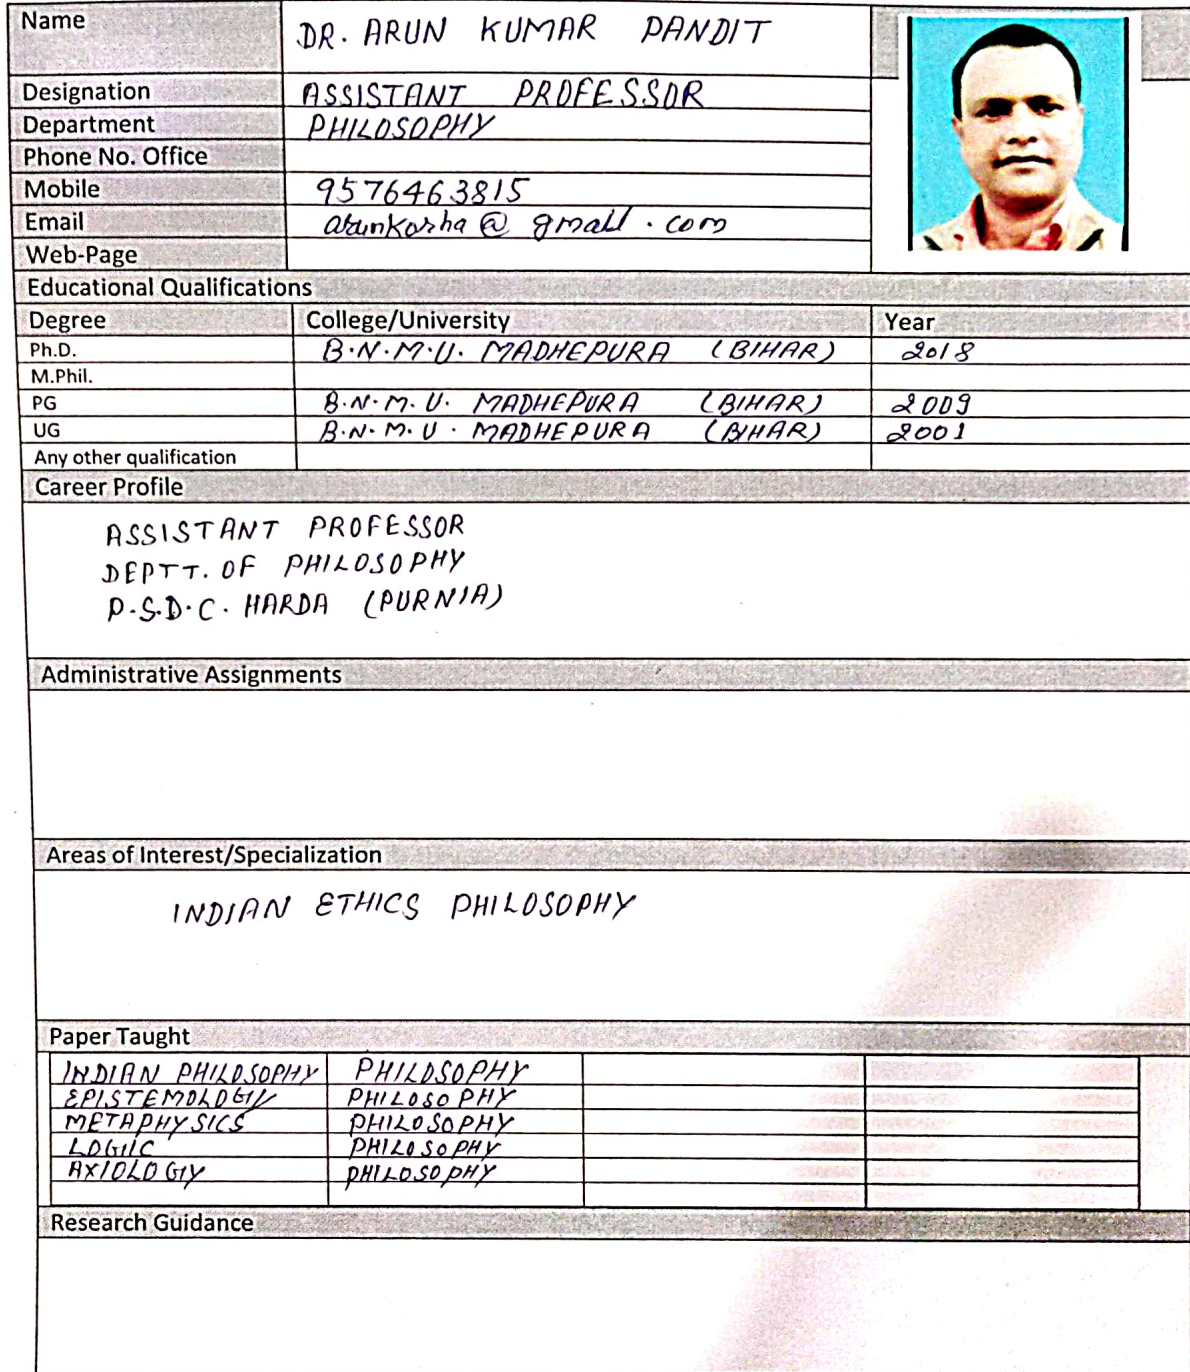 Name DR. ARUN KUMAR PANDIT
Designation ASSISTANT PROFESSOR
Department PHILOSOPHY
Phone No. Office
Mobile 9576463815
Email @ gmail . com
Web-Page
Educational Qualifications
Degree College/University Year
Ph.D. B.N.M.U. MADHEPURA (BIHAR) 2018
M.Phil.
PG B.N.M.U. MADHEPURA (BIHAR) 2009
UG B.N.M.U. MADHEPURA (BIHAR) 2001
Any other qualification
Career Profile
ASSISTANT PROFESSOR
DEPTT. OF PHILOSOPHY
P.S.D.C. HARDA (PURNIA)
Administrative Assignments
Areas of Interest/Specialization
INDIAN ETHICS PHILOSOPHY
Paper Taught
INDIAN PHILOSOPHY PHILOSOPHY
EPISTEMOLOGY PHILOSOPHY
METAPHYSICS PHILOSOPHY
LOGIC PHILOSOPHY
AXIOLOGY PHILOSOPHY
Research Guidance